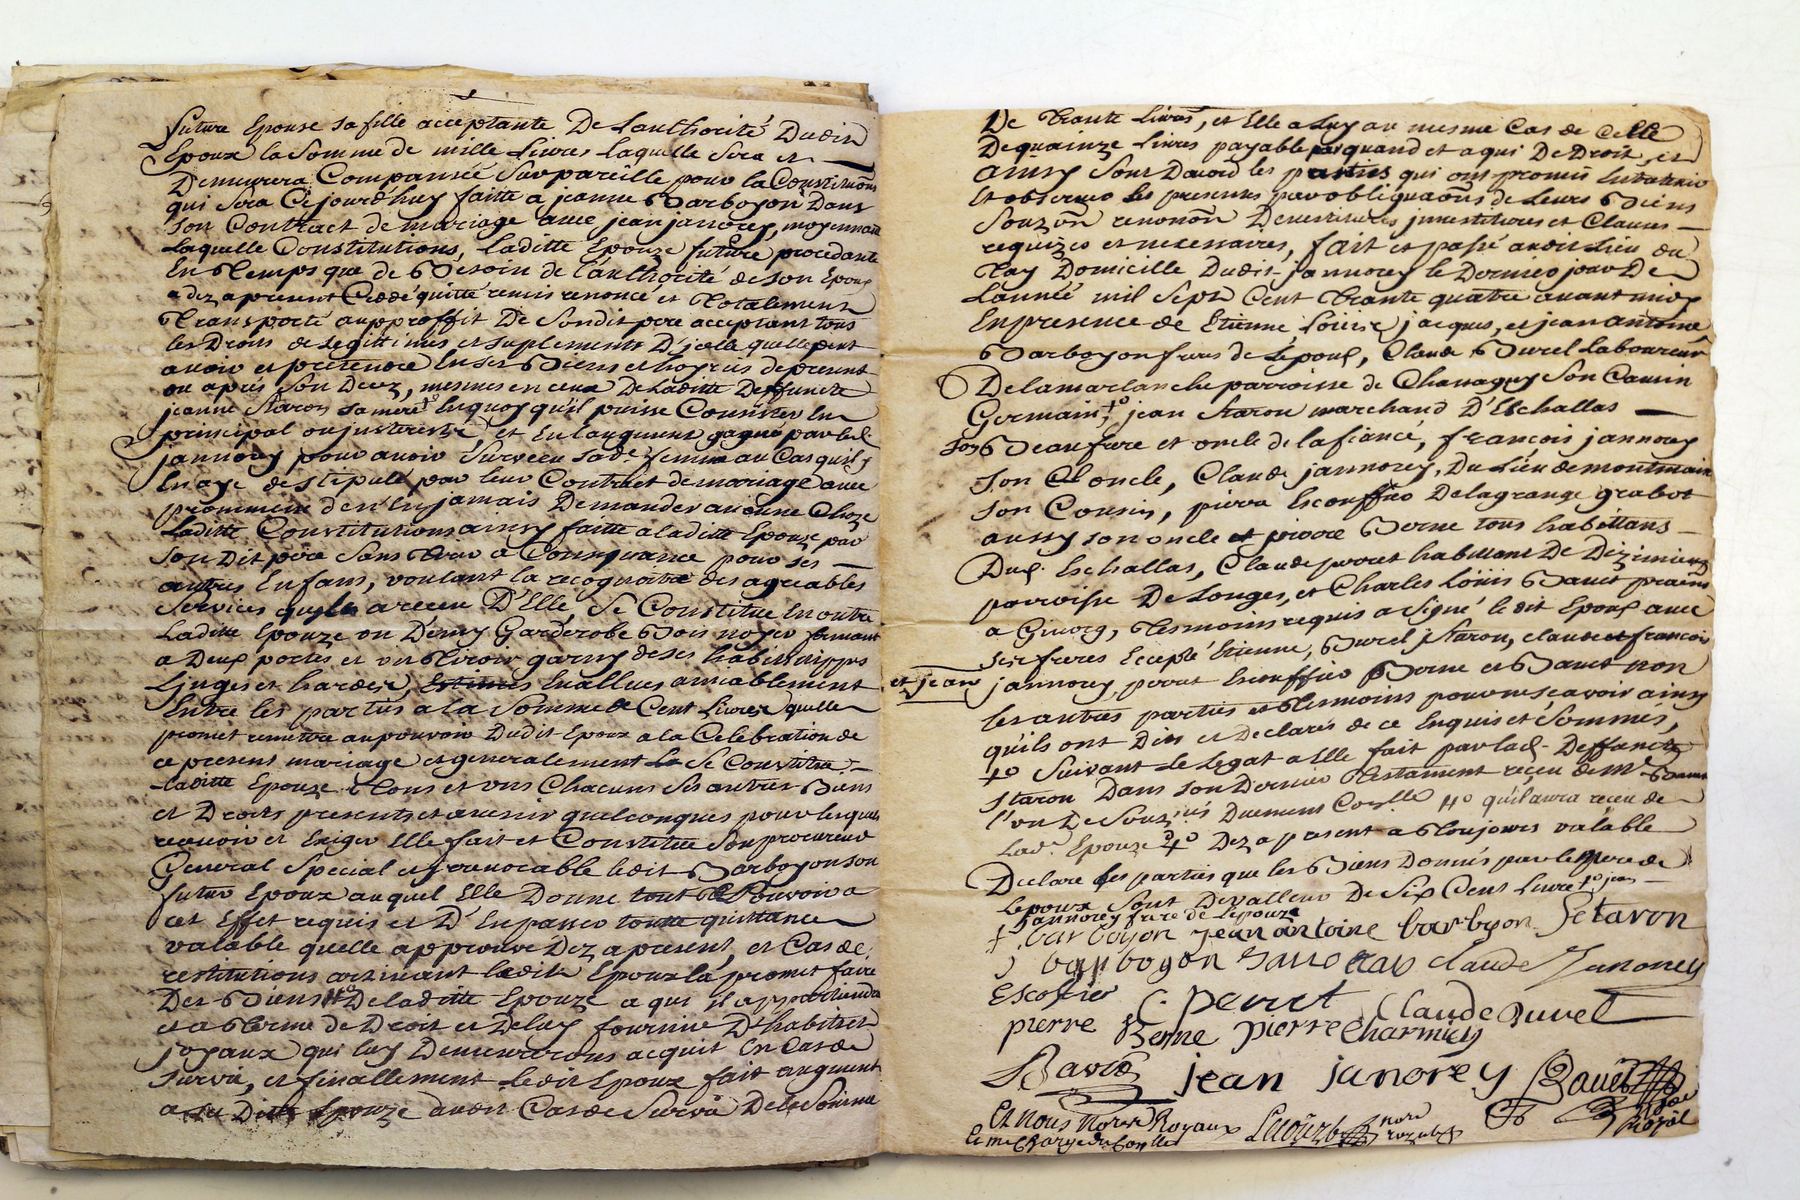 future Epouse sa fille acceptante De Lauthorité Dudit
Epoux la Somme de mille Livres laquelle sera et
Demeurera Compansée Sur pareille pour la Constitution
qui sera Cejourd'huy faitte a jeanne Barboyon Dans
son Contract de mariage avec jean janorey, moyennant
Laquelle Constitutions, Laditte Epouze future procedante
En Temps que de Besoin de l'authorité de son Epoux
a dez a present Ceddé quitté remis renoncé et Totalement
Transporté au proffit De Sondit pere acceptant tous
les Droits de legittimes et suplements D'jcelle quelle peut
avoir et pretendre En ses Biens et hoyries de present
ou apres son Decez, mesmes en ceux De Laditte Deffuncte
jeanne Staron sa mere Enquoy qu'il puisse Consister En
principal
jannorey pour avoir Survecu sa de femme au Cas quil y
En aye de stipulé par leur Contract de mariage avec
promesse den leur jamais Demander aucune Choze
Laditte Constitutions ainsy faitte a laditte Epouze par
son Dit pere Sans Tirer a Consequance pour ses
autres Enfans, voulant la recognoitre des agreables
Services quil a receu D'Elle Se Constitue En outre
Laditte Epouze un Demy Garderobe Bois noyer fermant
a Deux portes et un Tiroir garny de ses habits nippes
Linges et hardes, Evallues amiablement
Entre les parties a la Somme de Cent Livres quelle
promet remettre au pouvoir Dudit Epoux a la Celebration de
ce present mariage et generalement Se Constitue
laditte Epouze Tous et uns Chacuns Ses autres Biens
et Droits presents et avenir quelconques pour lesquels
recevoir et Exiger Elle fait et Constitue Son procureur
General Special et jrrevocable ledit Barboyon son
futur Epoux auquel Elle Donne tout Pouvoir a
cet Effet requis et D'En passer toutte quittance
valable quelle approuve Dez a present, et Cas de
restitutions arrivant ledit Epoux la promet faire
Des Biens De laditte Epouze a qui il appartiendra
et a Terme de Droit et Delay fournir D'habits et
joyaux qui luy Demeureront acquit En Cas de
Survie, et finallement ledit Epoux fait augment
a sa Ditte Epouze audit Cas de Survie De la Somme
De Trante Livres, et Elle a Luy au mesme Cas de Celle
De quainze Livres payable quand et a qui De Droit, et
ainsy Sont Daccord les parties qui ont promis
Et observer les presentes par obligations de Leurs Biens
renonon Devestitures jnvestitures et Clauses
requizes et necessaires, fait et passé audit Lieu du
Tay Domicille Dudit jannorey le Dernier jour De
Lannée mil Sept Cent Trante quatre avant midy
En presence de Etienne Loüis jacques, et jean antoine
Barboyon freres de l'Epoux, Claude Burel Laboureur
De la marlanche parroisse de Chassagny Son Cousin
Germain, jean Staron marchand D'Eschallas
son Beaufrere et oncle de la fiancé, françois jannorey
son oncle, Claude jannorey, Du Lieu de montmain
son Cousin, pierre Escouffier De la grange grabot
aussy son oncle et pierre Berne tous habittans
Dud. Eschallas, Claude perret habittant De Dizimieux
parroisse De Longes, et Charles Loüis Bavet praticien
a Givors, Tesmoins requis a signé ledit Epoux avec
ses freres Excepté Etienne, Burel Staron, claude et francois
et jean
jannorey, perret Escouffier Berne et Bavet non
les autres parties et Tesmoins pour ne scavoir ainsy
quils ont Dit et Declarés de ce Enquis et Sommés,
4° Suivant le Legat a Elle fait par lad. Deffuncte
Staron Dans son Dernier Testament receu de Me
l'un De Sous.nés Duement Con.llé 4° quil aura receu de
Lad. Epouze 4° Dez a present a Toujours valable
Declare les parties que les Biens Donnés par le pere de
Lepoux Sont De valleur De Six Cent Livre jean
jannorey frere de Lepouze
barboyon jean antoine barboyon Setaron
barboyon claude Janorey
Escofier C. perret Claude Burel
pierre Berne pierre Charmiey
Bavet jean janorey Bavet
Et nous Notre Royaux nore royal